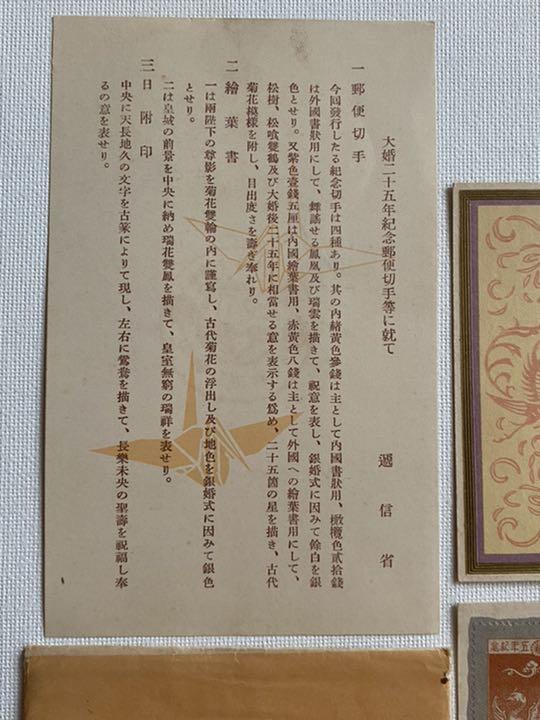 大婚二十五年紀念郵便切手等に就て
遞信省
一 郵便切手
今回發行したる紀念切手は四種あり。其の内緖黃色參錢は主として内國書狀用、橄欖色貳拾錢
は外國書狀用にして、舞謠せる鳳凰及び瑞雲を描きて、祝意を表し、銀婚式に因みて餘白を銀
色とせり。又紫色壹錢五厘は内國繪葉書用、赤黃色八錢は主として外國への繪葉書用にして、
松樹、松喰雙鶴及び大婚後二十五年に相當せる意を表示する爲め、二十五箇の星を描き、古代
菊花模樣を附し、目出度さを壽ぎ奉れり。
二 繪葉書
一は兩陛下の尊影を菊花雙輪の内に謹寫し、古代菊花の浮出し及び地色を銀婚式に因みて銀色
とせり。
二は皇城の前景を中央に納め瑞花雙鳳を描きて、皇室無窮の瑞祥を表せり。
三 日附印
中央に天長地久の文字を古篆によりて現し、左右に鴛鴦を描きて、長樂未央の聖壽を祝福し奉
るの意を表せり。